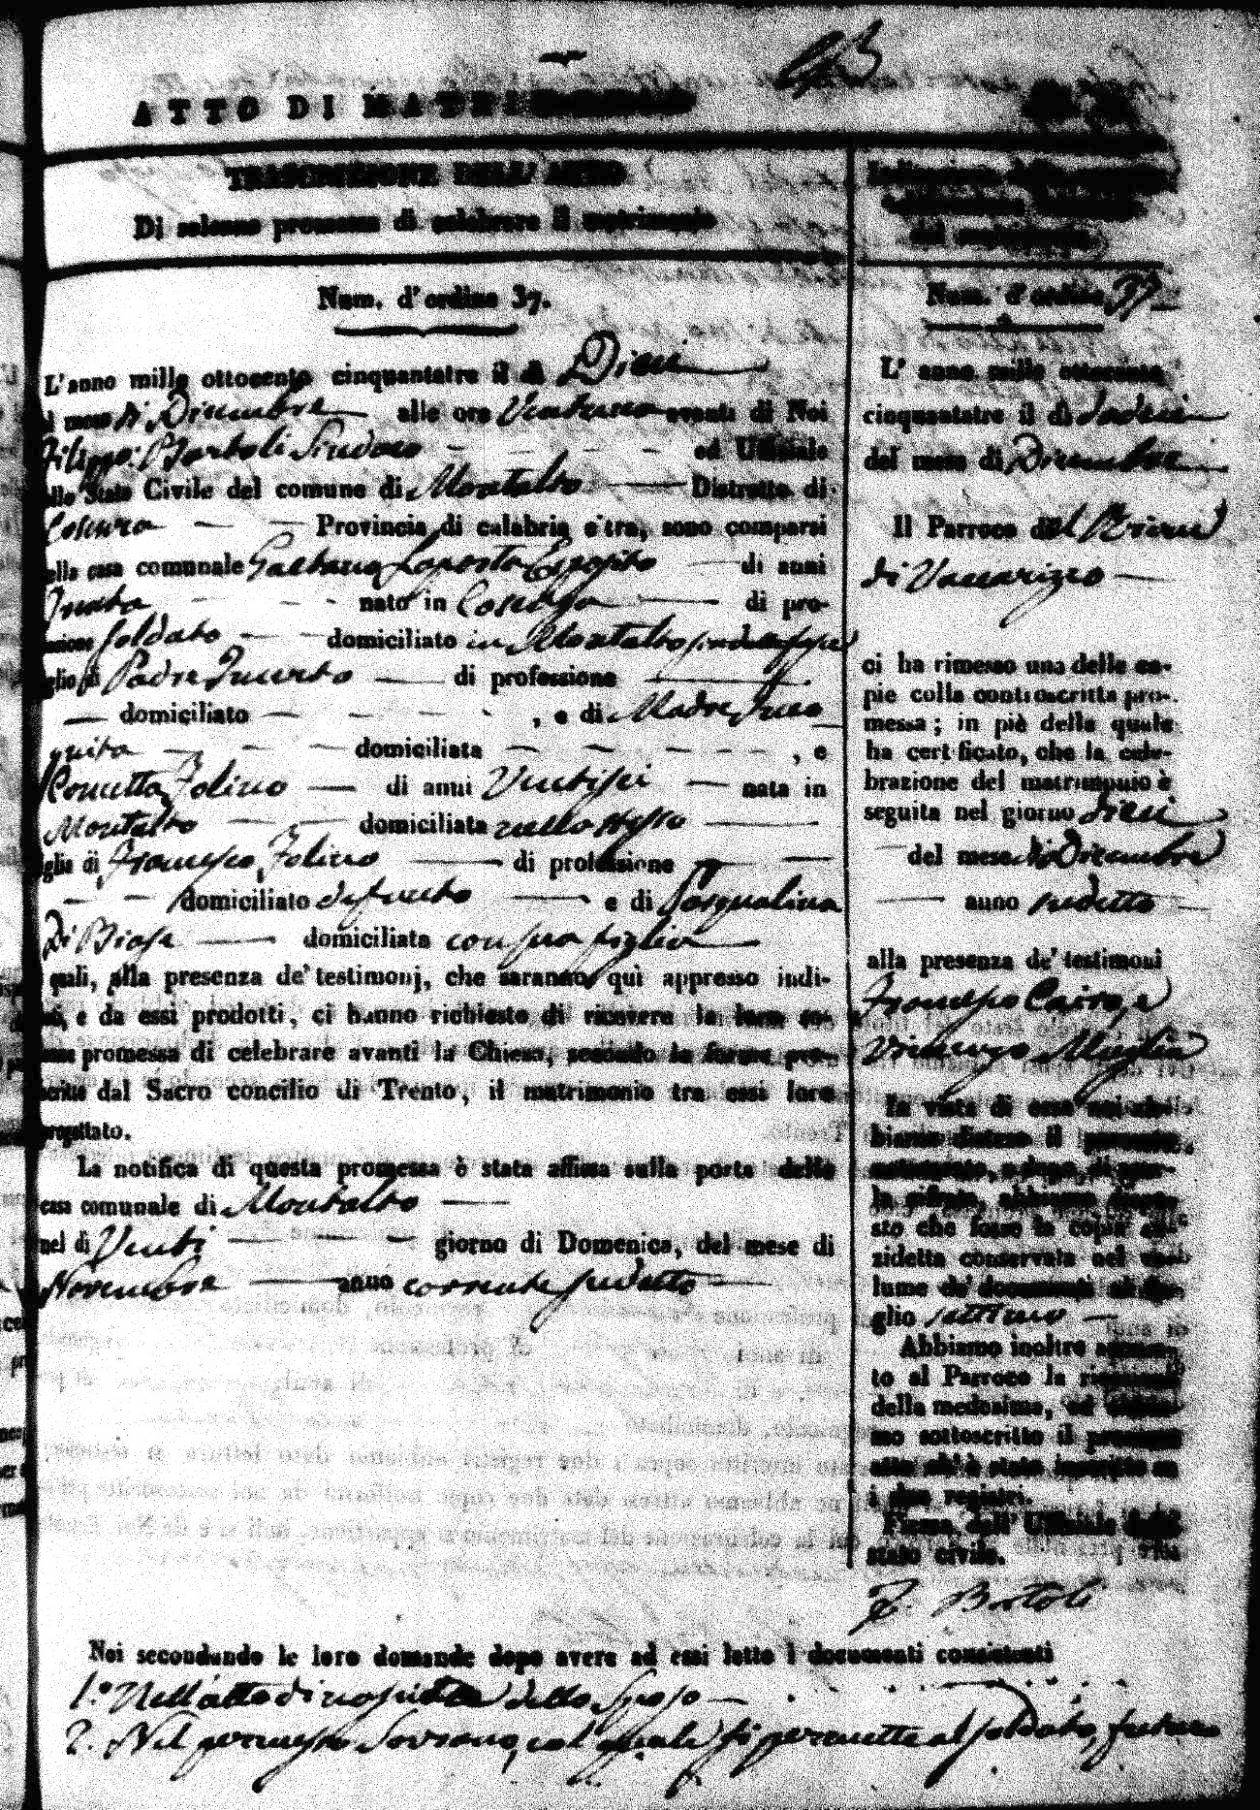 93
ATTO DI MATRIMONIO
TRASCRIZIONE DELL' ATTO
Di solenne promessa di celebrare il matrimonio
Num. d'ordine 37.
L'anno mille ottocento cinquantatre il dì Dieci
del mese di Dicembre alle ore Ventuno avanti di Noi
Filippo Bartoli Sindaco ed Uffiziale
dello Stato Civile del comune di Montalto Distretto di
Cosenza Provincia di calabria citra, sono comparsi
nella casa comunale Gaetano Laposta Esposito di anni
Trenta nato in Cosenza di pro-
fessione Soldato domiciliato in Montalto
figlio di Padre Incerto di professione
domiciliato , e di Madre Inco
gnita domiciliata , e
Folino di anni Ventisei nata in
Montalto domiciliata nello stesso
figlia di Francesco Folino di professione
domiciliato defunto e di Pasqualina
Di Biase domiciliata con sua figlia
quali, alla presenza de' testimonj, che saranno qui appresso indi-
cati, e da essi prodotti, ci hanno richiesto di ricevere la loro so-
lenne promessa di celebrare avanti la Chiesa, secondo le forme pre-
scritte dal Sacro concilio di Trento, il matrimonio tra essi loro
progettato.
La notifica di questa promessa è stata affissa sulla porta della
casa comunale di Montalto
nel dì Venti giorno di Domenica, del mese di
Novembre anno corrente sudetto
del matrimonio.
Num. d'ordine 37
L' anno mille ottocento
cinquantatre il dì dodeci
del mese di Dicembre
Il Parroco del Rione
di Vaccarizzo
ci ha rimesso una delle co-
pie colla controscritta pro-
messa; in piè della quale
ha certificato, che la cele-
brazione del matrimonio è
seguita nel giorno dieci
del mese di Dicembre
anno sudetto
alla presenza de' testimoni
Francesco Cairo e
Vincenzo Miglia
In vista di essa noi ab-
biamo disteso il presente
sto che fosse la copia an-
zidetta conservata nel vo-
lume de' documenti al fo-
glio settimo
Abbiamo inoltre accusa-
to al Parroco la ricevuta
della medesima, ed abbia-
mo sottoscritto il presente
atto ch'è stato inscritto su
i due registri.
Firma dell' Uffiziale dello
stato civile.
F. Bartoli
Noi secondando le loro domande dopo avere ad essi letto i documenti consistenti
1.° Nell'atto di nascita dello Sposo
2. Nel permesso Sovrano, col quale si permette al soldato, futuro